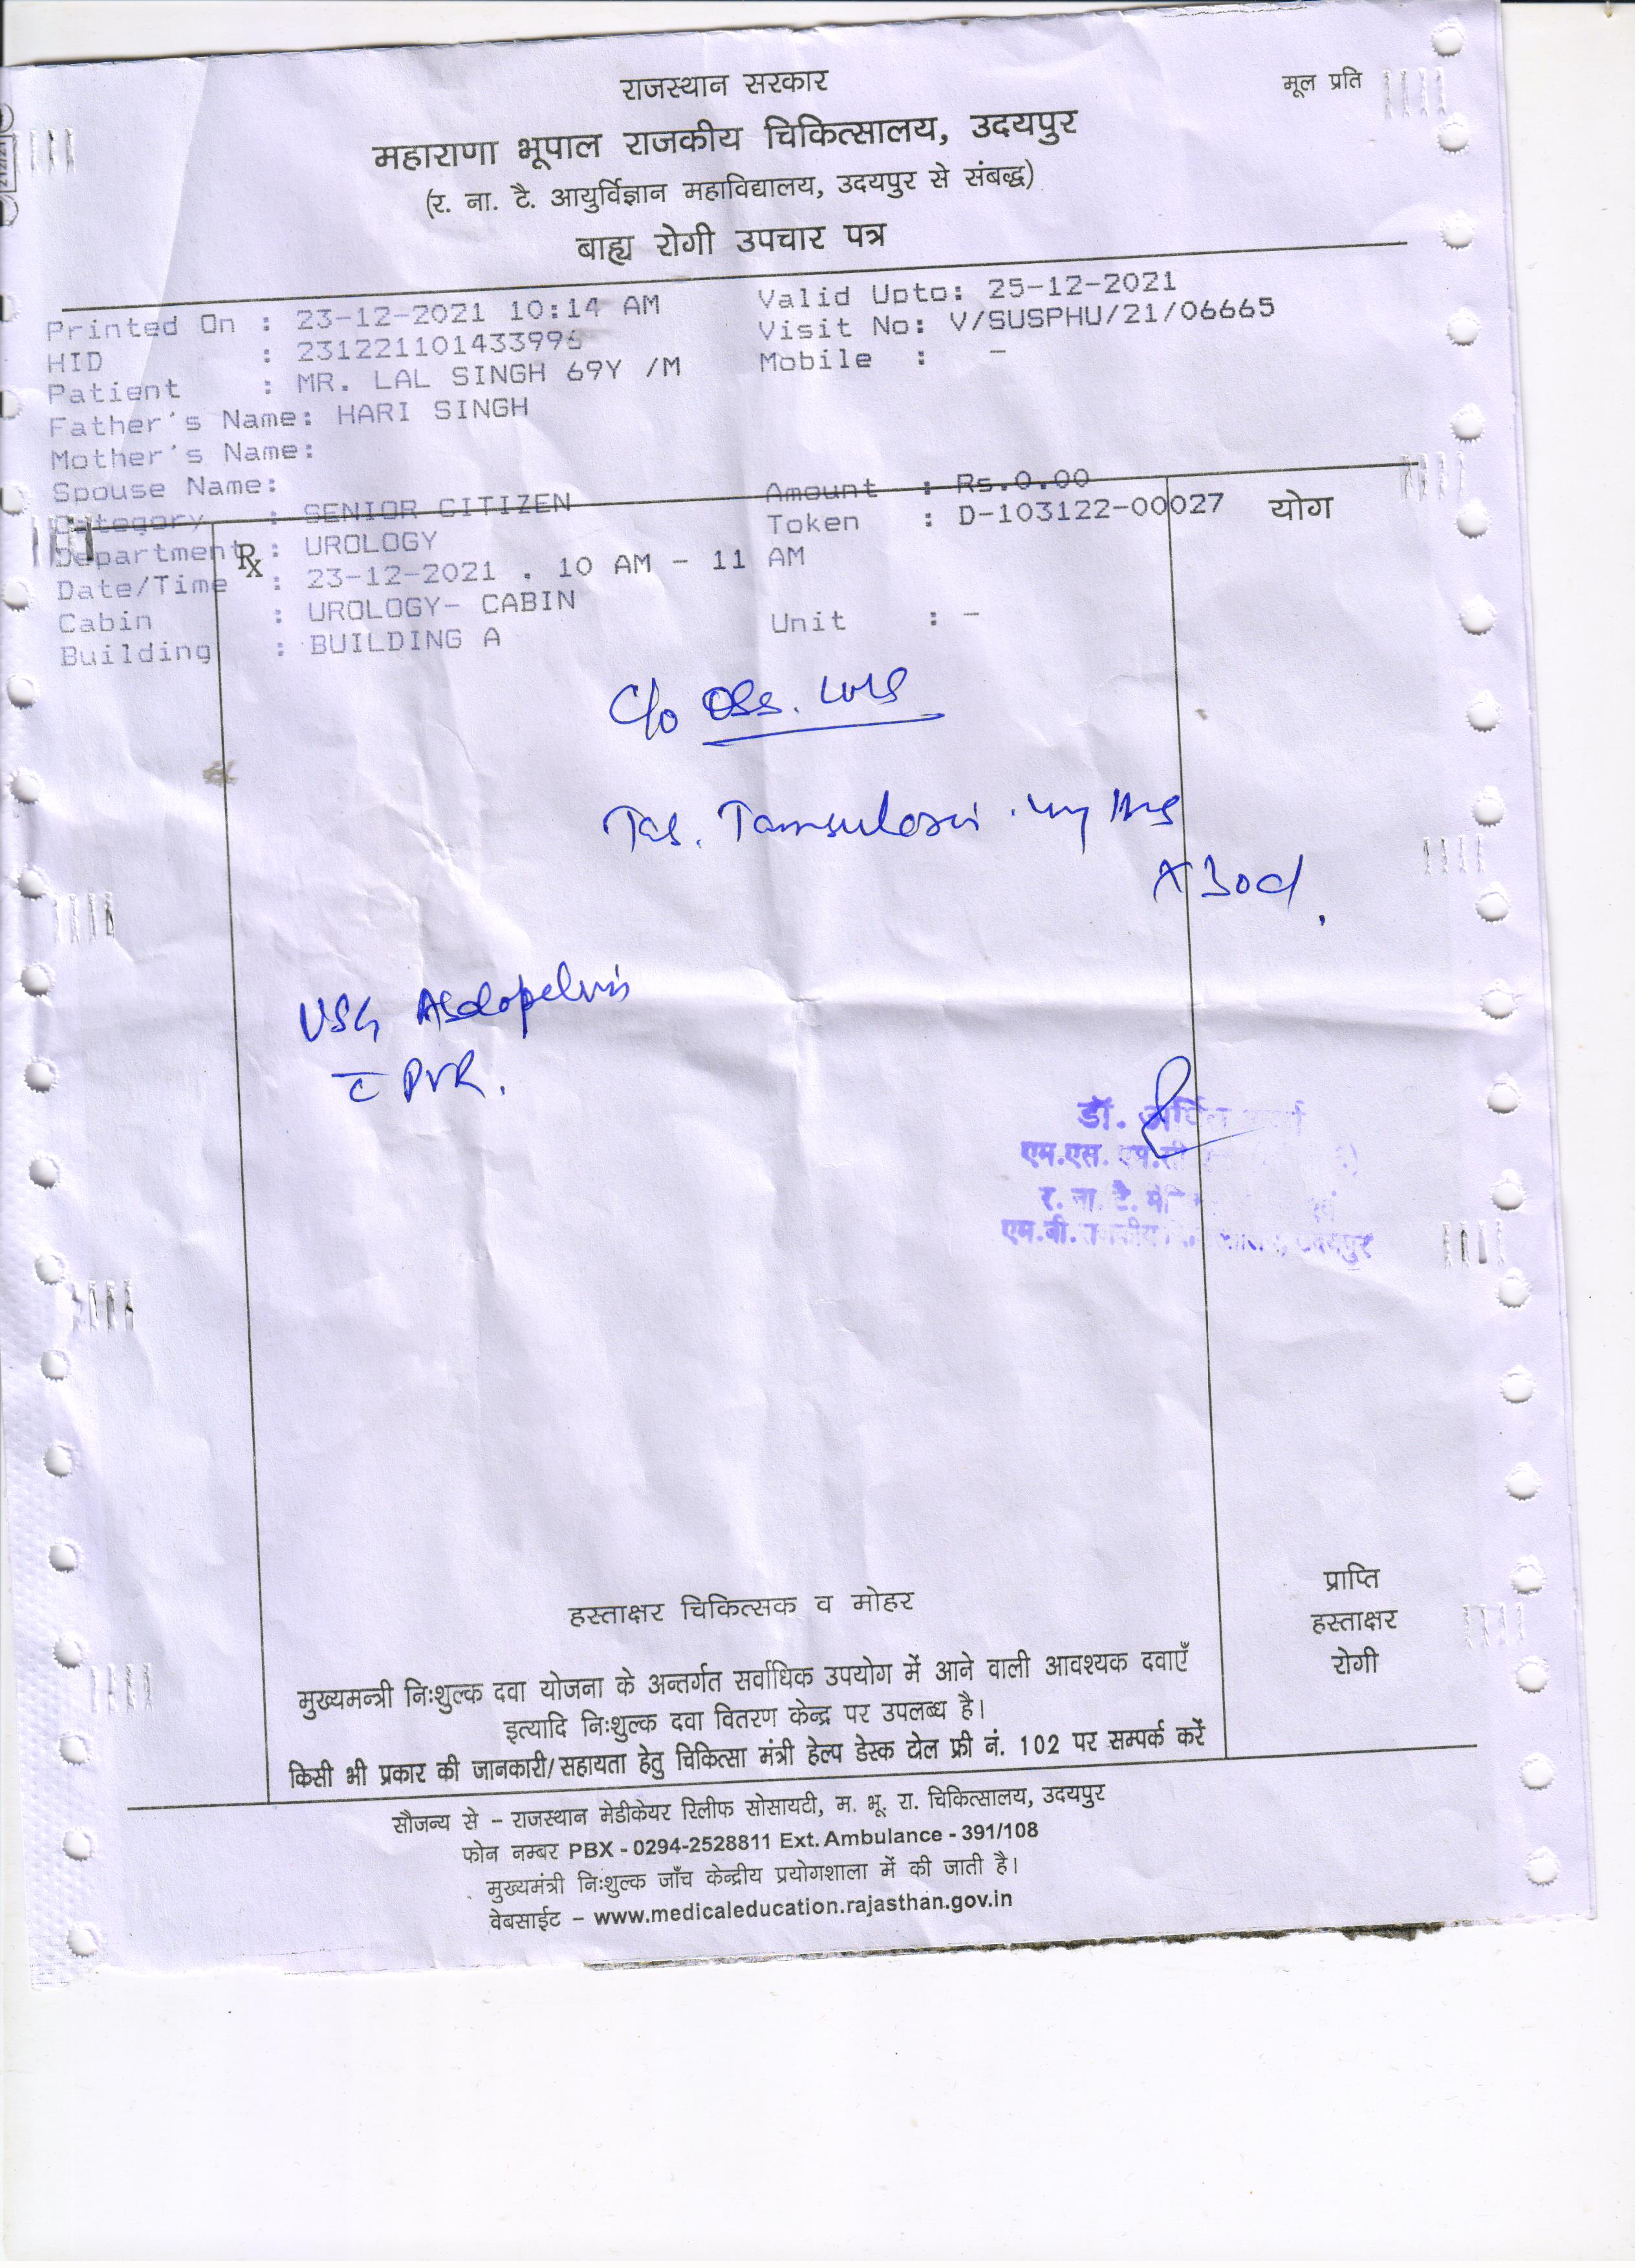 राजस्थान सरकार
मूल प्रति
महाराणा भूपाल राजकीय चिकित्सालय, उदयपुर
(र. ना. टै. आयुर्विज्ञान महाविद्यालय, उदयपुर से संबद्ध)
बाह्य रोगी उपचार पत्र
Printed On : 23-12-2021 10:14 AM Valid Upto: 25-12-2021
HID : 231221101433996 Visit No: V/SUSPHU/21/06665
Patient : MR. LAL SINGH 69Y /M Mobile : -
Father's Name: HARI SINGH
Mother's Name:
Spouse Name:
Category : SENIOR CITIZEN Amount : Rs.0.00
Department : UROLOGY Token : D-103122-00027
योग
Rx
Date/Time : 23-12-2021 . 10 AM - 11 AM
Cabin : UROLOGY- CABIN
Building : BUILDING A Unit : -
C/o
Tab. Tamsulosin
x 30d.
USG Abdopelvis
c̄ PVR.
डॉ.
एम.एस.
र. ना. टै.
एम.बी. उदयपुर
हस्ताक्षर चिकित्सक व मोहर
प्राप्ति
हस्ताक्षर
रोगी
मुख्यमन्त्री निःशुल्क दवा योजना के अन्तर्गत सर्वाधिक उपयोग में आने वाली आवश्यक दवाएँ
इत्यादि निःशुल्क दवा वितरण केन्द्र पर उपलब्ध है।
किसी भी प्रकार की जानकारी/सहायता हेतु चिकित्सा मंत्री हेल्प डेस्क टोल फ्री नं. 102 पर सम्पर्क करें
सौजन्य से – राजस्थान मेडीकेयर रिलीफ सोसायटी, म. भू. रा. चिकित्सालय, उदयपुर
फोन नम्बर PBX - 0294-2528811 Ext. Ambulance - 391/108
मुख्यमंत्री निःशुल्क जाँच केन्द्रीय प्रयोगशाला में की जाती है।
वेबसाईट – www.medicaleducation.rajasthan.gov.in